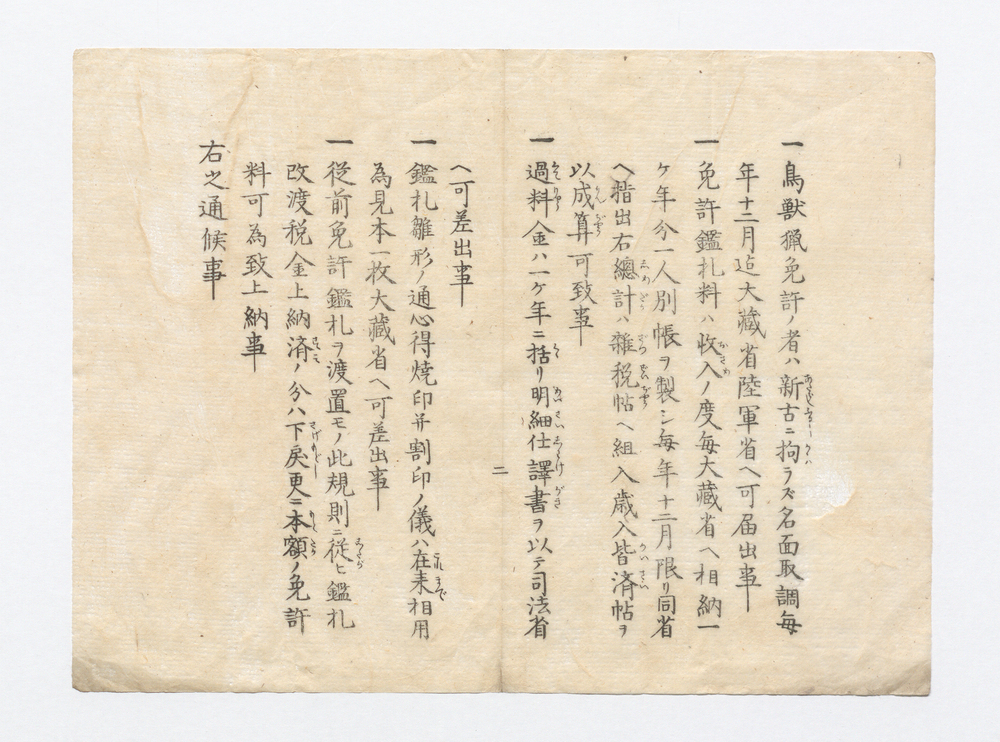 一鳥獣猟免許ノ者ハ新古ニ拘ラズ名面取調毎
年十二月迠大藏省陸軍省ヘ可届出事
一免許鑑札料ハ收入ノ度毎大藏省ヘ相納一
ケ年分一人別帳ヲ製シ毎年十二月限リ同省
ヘ指出右總計ハ雑税帖ヘ組入歳入皆済帖ヲ
以成算可致事
一過料金ハ一ケ年ニ括リ明細仕譯書ヲ以テ司法省
二
ヘ可差出事
一鑑札雛形ノ通心得焼印幷割印ノ儀ハ在来相用
為見本一枚大藏省ヘ可差出事
一従前免許鑑札ヲ渡置モノ此規則ニ従ヒ鑑札
改渡税金上納済ノ分ハ下戻更ニ本額ノ免許
料可為致上納事
右之通候事